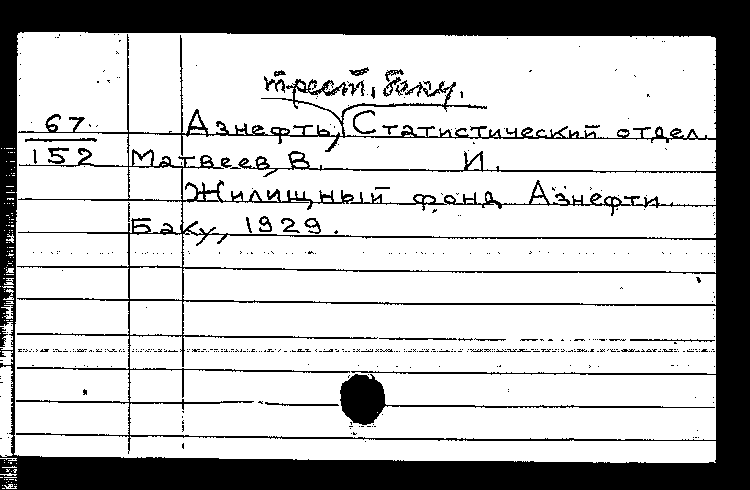 трест, Баку.
67 Азнефть, Статистический отдел.
152 Матвеев, В. И.
Жилищный фонд Азнефти.
Баку, 1929.